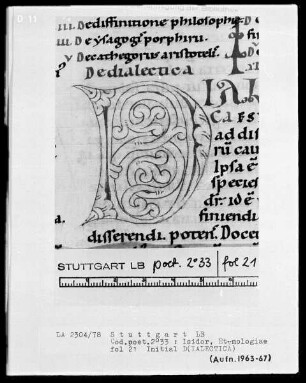 D 11
iii. De diffinitione philosophie
iii. De ysagogis porphirii
v. De cathegoriis aristotelis
De dialectica
D IALE
CA EST
ad disc
caus
Ipsa e
species
dr. id e
finiendi
disserendi. potens. Docet
STUTTGART LB poet. 2°33 fol 21
LA 2304/78 Stuttgart LB
Cod.poet.2°33 : Isidor, Etymologiae
fol 21 Initial D(IALECTICA)
(Aufn.1963-67)